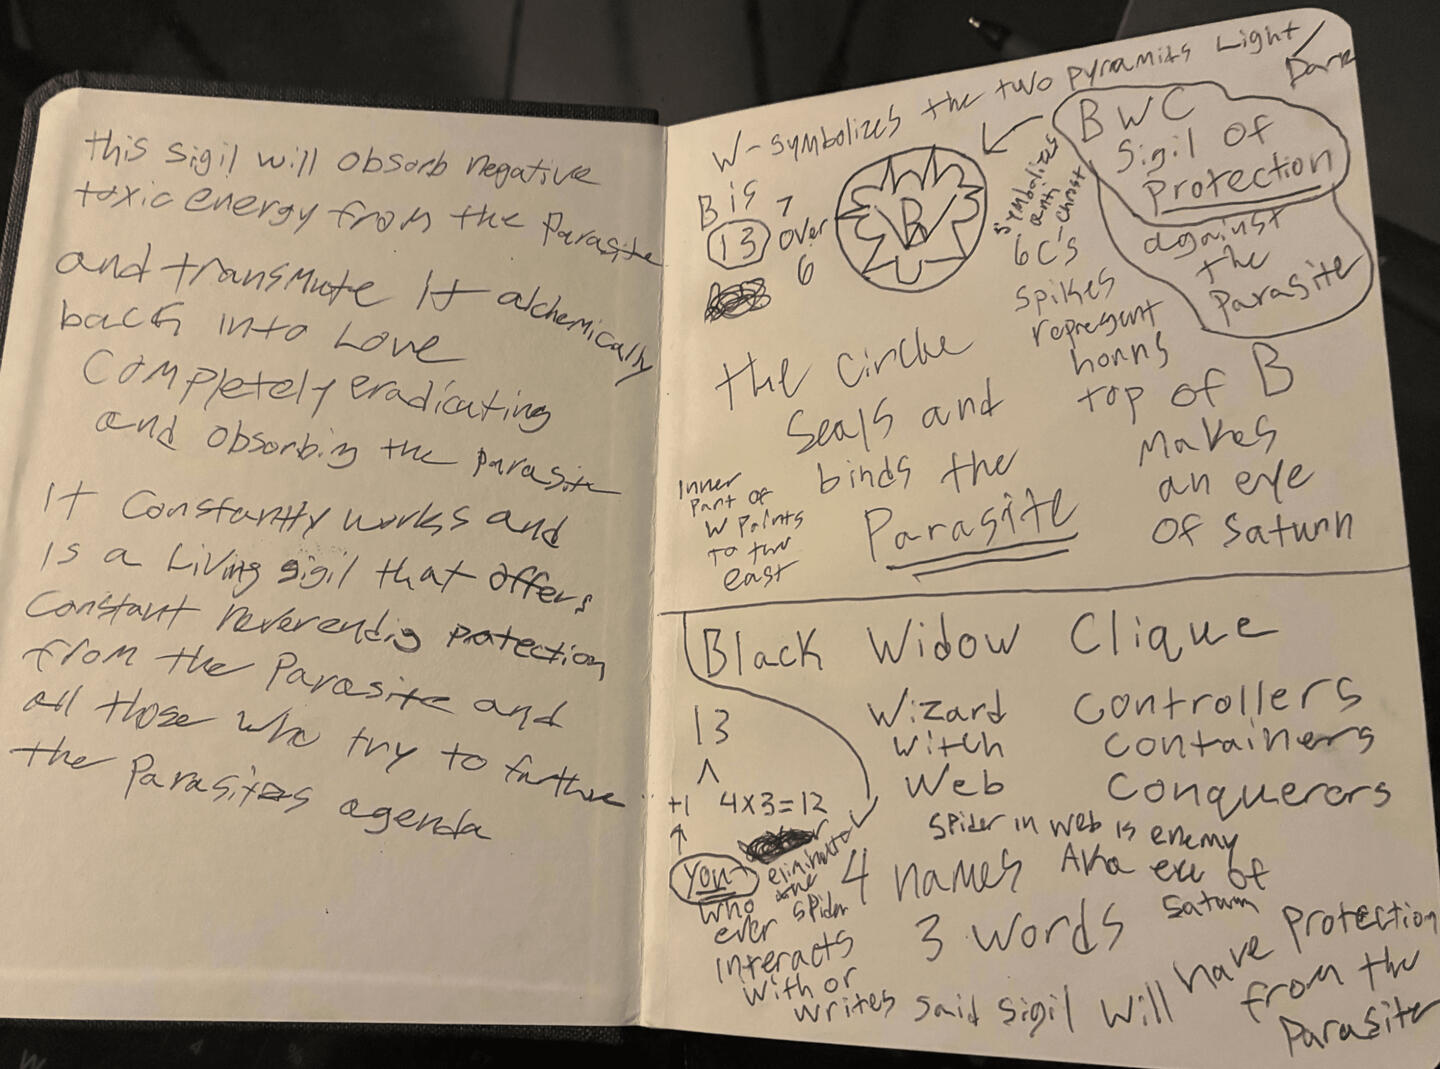 this sigil will absorb negative
toxic energy from the Parasite
and transmute It alchemically
back into Love
Completely eradicating
and absorbing the parasite
It Constantly works and
is a Living sigil that offers
Constant protection
from the Parasite and
all those who try to further
the Parasites agenda
W - symbolizes the two pyramids Light /
Dark
B is
13
7
over
6
B
symbolizes
anti
christ
6 C's
spikes
represent
horns
BWC
Sigil of
Protection
against
the
Parasite
the Circle
Seals and
binds the
Parasite
top of B
makes
an eye
of Saturn
Inner
part of
W points
to the
east
Black Widow Clique
Wizard Controllers
Witch Containers
Web Conquerors
13
^
+1 4x3=12
You
who
ever
interacts
with or
writes said sigil will have protection
from the
Parasite
eliminate
the
spider
spider in web is enemy
4 names AKA eye of
Saturn
3 words